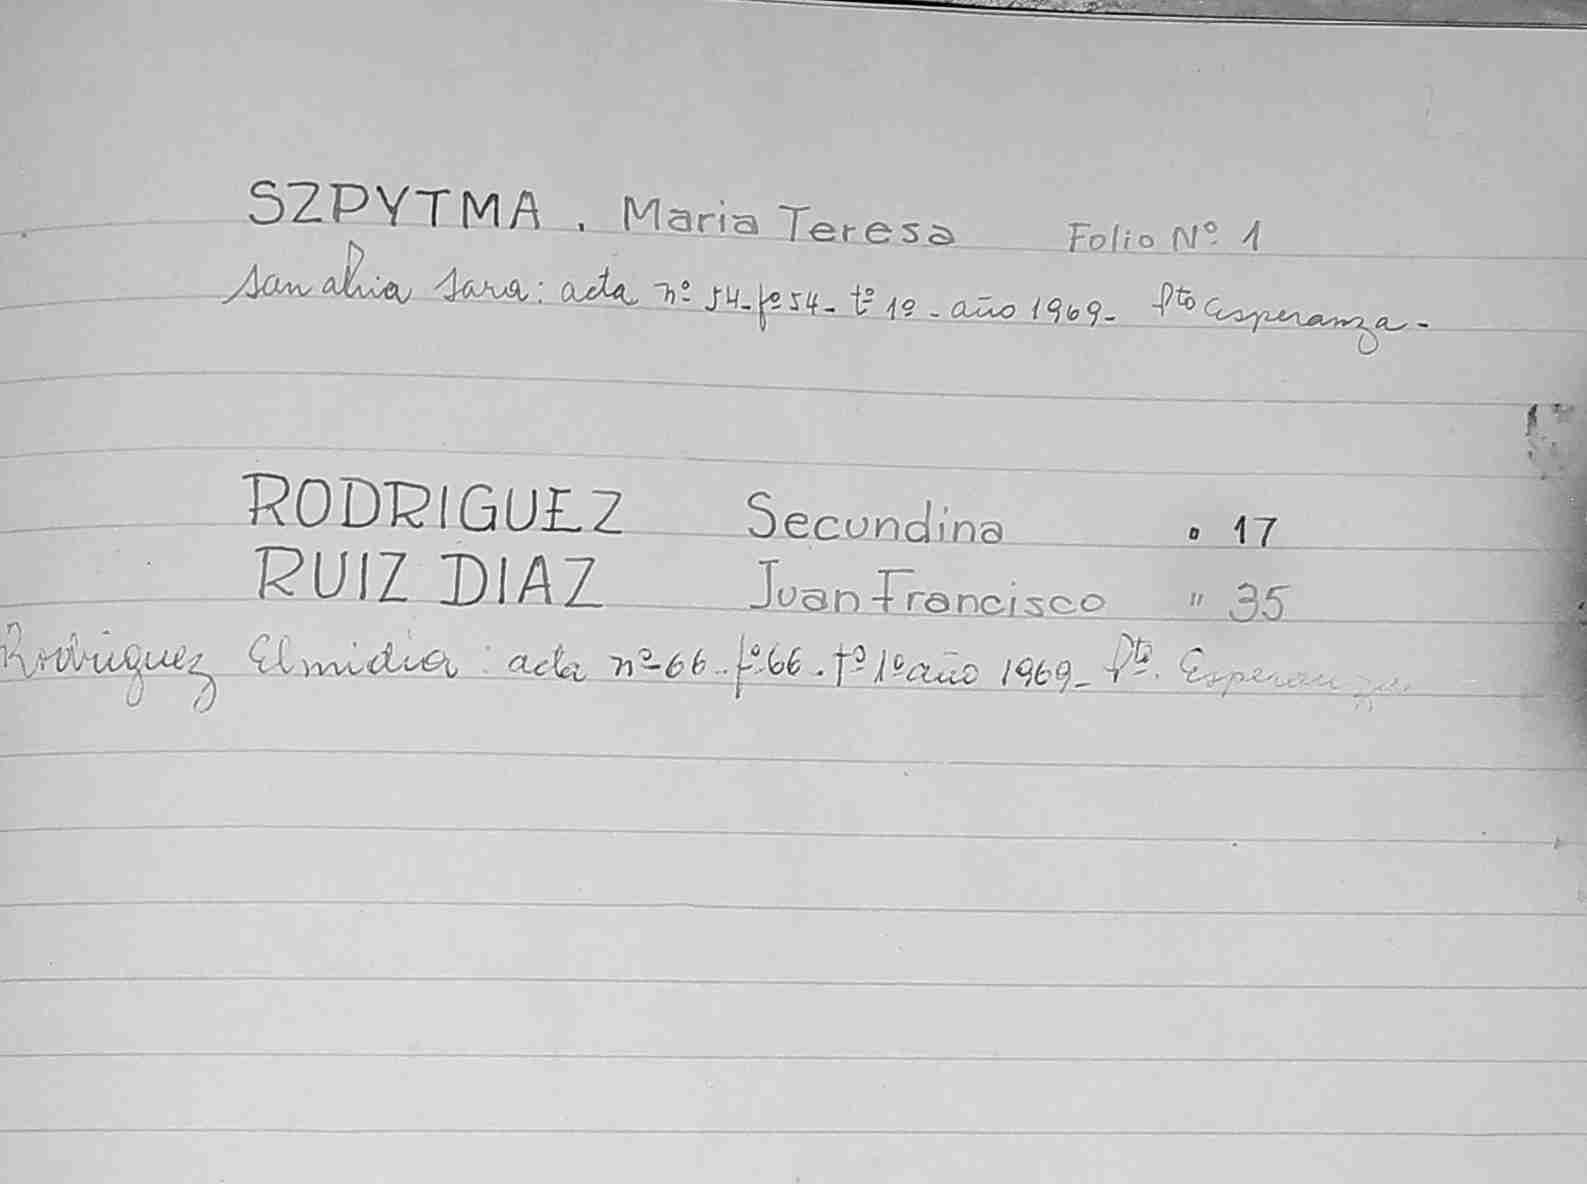 SZPYTMA. Maria Teresa Folio Nº 1
Sara: acta nº 54-fº54- tº 1º- año 1969- Pto Esperanza-
RODRIGUEZ Secundina " 17
RUIZ DIAZ Juan Francisco " 35
Rodriguez Elmidia: acta nº66. fº66. tº 1º año 1969- Pto. Esperanza.